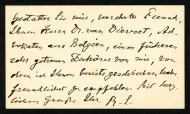 Gestatten Sie mir, verehrter Freund,
Ihnen Herrn Dr. van Diervoet, Ad-
vokaten aus Belgien, einen früheren
sehr getreuen Zuhörer von mir, von
dem ich Ihnen bereits geschrieben habe,
freundlichst zu empfehlen. Mit herz-
lichem Gruße Ihr